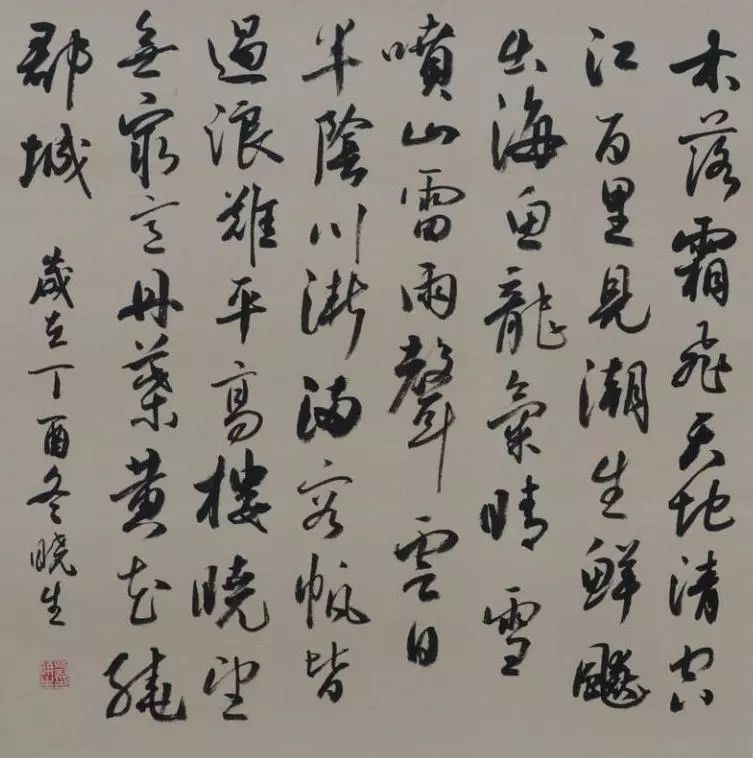 木落霜飛天地清空
江百里見潮生鮮飈
出海魚龍氣晴雪
噴山雷雨聲雲日
半陰川漸滿客帆皆
過浪難平高樓曉望
無窮意丹葉黃花繞
郡城 歲在丁酉冬曉生